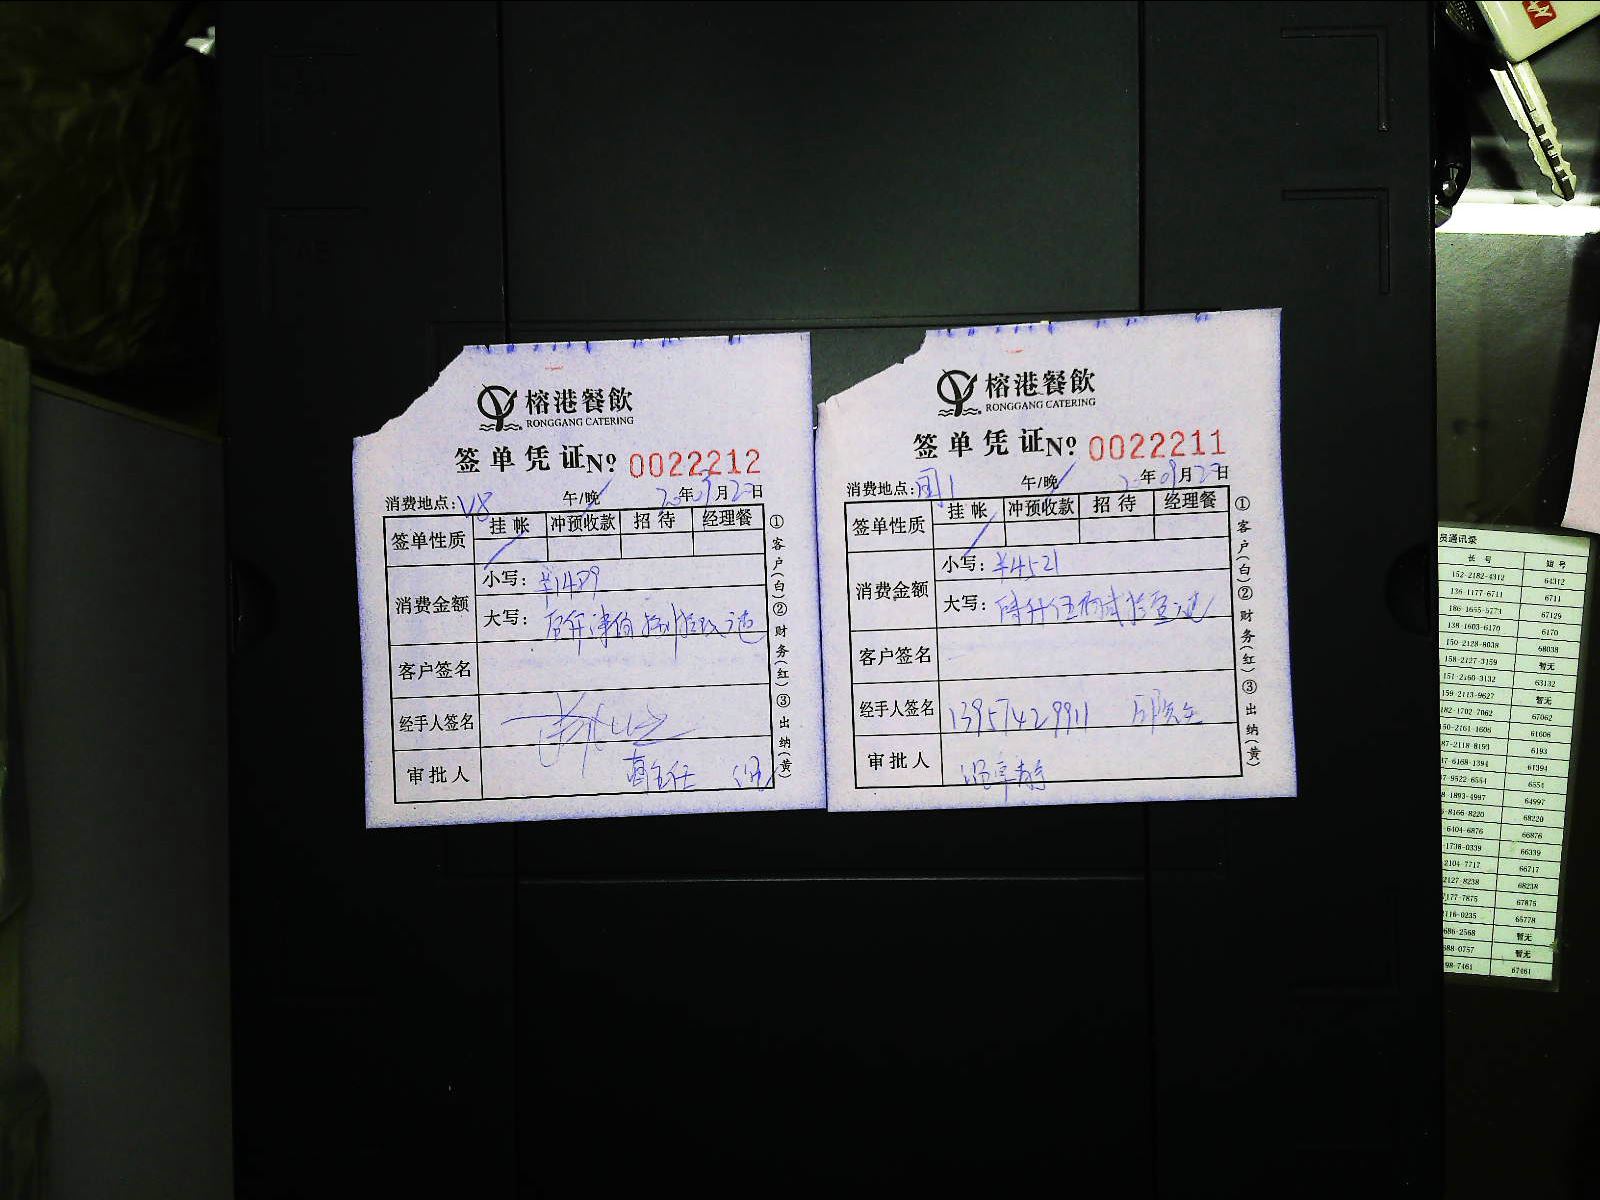 榕港餐飲
RONGGANG CATERING
签单凭证No 0022212
消费地点: V8 午/晚 年 月 日
签单性质 挂帐 冲预收款 招待 经理餐
消费金额 小写: ¥1489
大写:
客户签名
经手人签名
审批人
①客户(白)②财务(红)③出纳(黄)
榕港餐飲
RONGGANG CATERING
签单凭证No 0022211
消费地点: 午/晚 年 09月 日
签单性质 挂帐 冲预收款 招待 经理餐
消费金额 小写: ¥4521
大写: 肆仟伍佰贰拾壹元
客户签名
经手人签名 13957429911
审批人
①客户(白)②财务(红)③出纳(黄)
员通讯录
长号 短号
152-2182-4312 64312
136-1177-6711 6711
186-1655-5773 67129
138-1603-6170 6170
150-2128-8038 68038
158-2127-3159 暂无
151-2160-3132 63132
159-2113-9627 暂无
182-1702-7062 67062
50-2161-1606 61606
87-2118-8193 6193
7-6168-1394 61394
7-9522-6554 6554
8-1893-4997 64997
-8166-8220 68220
-6404-6876 66876
-1738-0339 66339
2104-7717 66717
2127-8238 68238
7177-7875 67875
2116-0235 65778
686-2568 暂无
588-0757 暂无
98-7461 67461